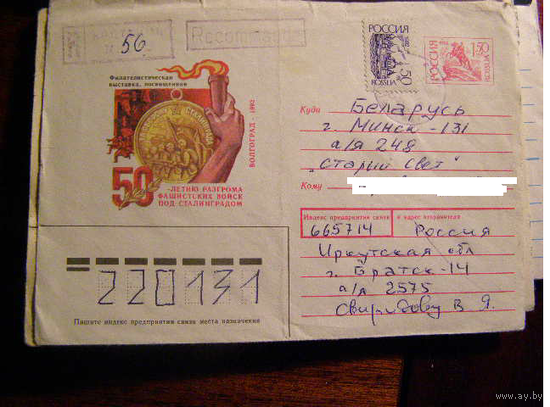 56
Recommandé
РОССИЯ
50
ROSSIJA
РОССИЯ
1.50
ROSSIJA
Филателистическая
выставка, посвященная
ВОЛГОГРАД · 1992
50
-ЛЕТИЮ РАЗГРОМА
ФАШИСТСКИХ ВОЙСК
ПОД СТАЛИНГРАДОМ
Куда Беларусь
г. Минск-131
а/я 248
"Старый Свет"
Кому
Индекс предприятия связи и адрес отправителя
665714 Россия
Иркутская обл
г. Братск-14
а/я 2575
Свиридову В Я.
220131
Пишите индекс предприятия связи места назначения
www.ay.by